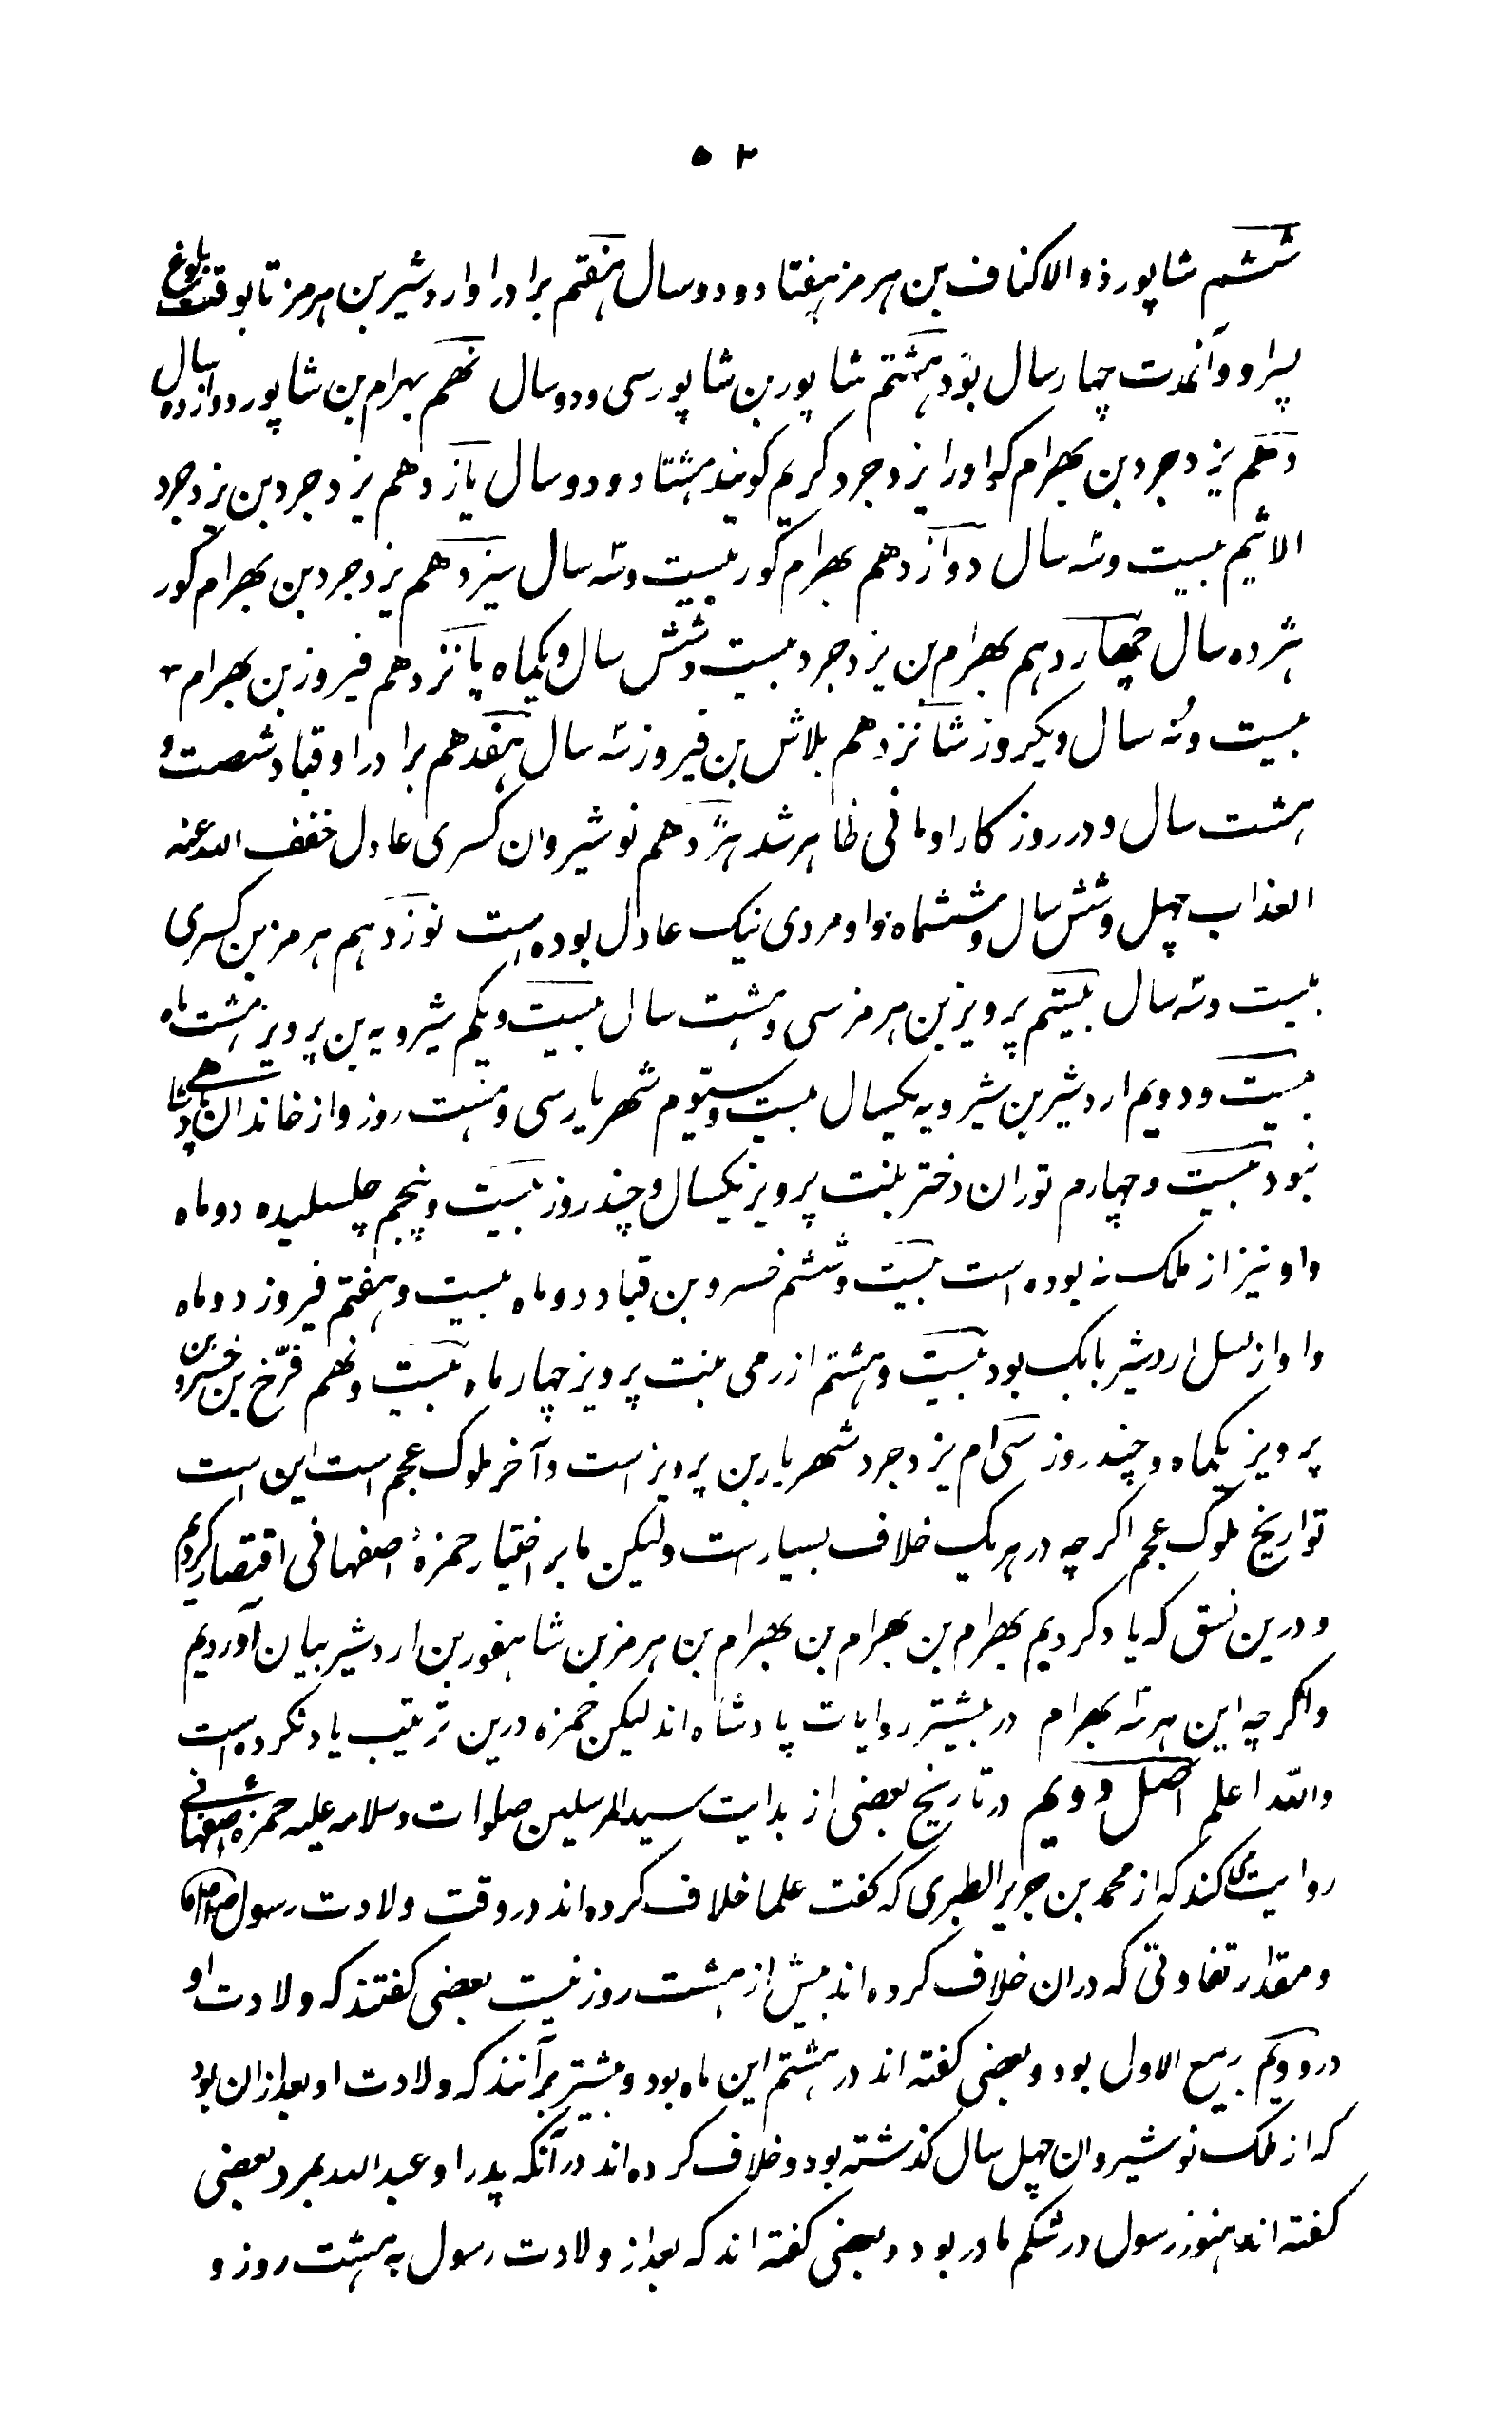 ۵۲
ششم شاپور ذو الاکناف بن هرمز هفتاد و دو سال هفتم برادر او اردشیر بن هرمز تا بوقت بلوغ
پسر او و آنمدت چهار سال بود هشتم شاپور بن شاپور سی و دو سال نهم بهرام بن شاپور دوازده سال
دهم یزدجرد بن بهرام که او را یزدجرد کریم کویند هشتاد و دو سال یازدهم یزدجرد بن یزدجرد
الاثیم بیست و سه سال دوازدهم بهرام کور بیست و سه سال سیزدهم یزدجرد بن بهرام کور
هژده سال چهاردهم بهرام بن یزدجرد بیست و شش سال و یکماه پانزدهم فیروز بن بهرام
بیست و نه سال و یکروز شانزدهم بلاش بن فیروز سه سال هفدهم برادر او قباد شصت و
هشت سال و در روزکار او مانی ظاهر شد هژدهم نوشیروان کسری عادل خفف الله عنه
العذاب چهل و شش سال و ششماه و او مردی نیک عادل بوده است نوزدهم هرمز بن کسری
بیست و سه سال بیستم پرویز بن هرمز سی و هشت سال بیست و یکم شیرویه بن پرویز هشت ماه
بیست و دویم اردشیر بن شیرویه یکسال بیست و سیوم شهریار سی و هشت روز و از خاندان پادشاهی
نبود بیست و چهارم توران دختر بنت پرویز یکسال و چند روز بیست و پنجم چلسلیده دو ماه
و او نیز از ملک نه بوده است بیست و ششم خسرو بن قباد دو ماه بیست و هفتم فیروز دو ماه
و او از نسل اردشیر بابک بود بیست و هشتم ازرمی بنت پرویز چهار ماه بیست و نهم فرّخ بن خسرو بن
پرویز یکماه و چند روز سی ام یزدجرد شهریار بن پرویز است و آخر ملوک عجم است این است
تواریخ ملوک عجم اکرچه در هر یک خلاف بسیار است ولیکن ما بر اختیار حمزهٔ اصفهانی اقتصار کردیم
و درین نسق که یاد کردیم بهرام بن بهرام بن بهرام بن هرمز بن شاهفور بن اردشیر بیان آوردیم
و اکرچه این هر سه بهرام در بیشتر روایات پادشاه اند لیکن حمزه درین ترتیب یاد نکرده است
والله اعلم اصل دویم در تاریخ بعضی از بدایت سید المرسلین صلوات و سلامه علیه حمزه اصفهانی
روایت می کند که از محمد بن جریر الطبری که کفت علما خلاف کرده اند در وقت ولادت رسول
و مقدار تفاوتی که دران خلاف کرده اند بیش از هشت روز نیست بعضی کفتند که ولادت او
در دویم ربیع الاول بود و بعضی کفته اند در هشتم این ماه بود و بیشتر برآنند که ولادت او بعد ازان بود
که از ملک نوشیروان چهل سال کذشته بود و خلاف کرده اند در آنکه پدر او عبد الله بمرد بعضی
کفته اند هنوز رسول در شکم مادر بود و بعضی کفته اند که بعد از ولادت رسول به هشت روز و